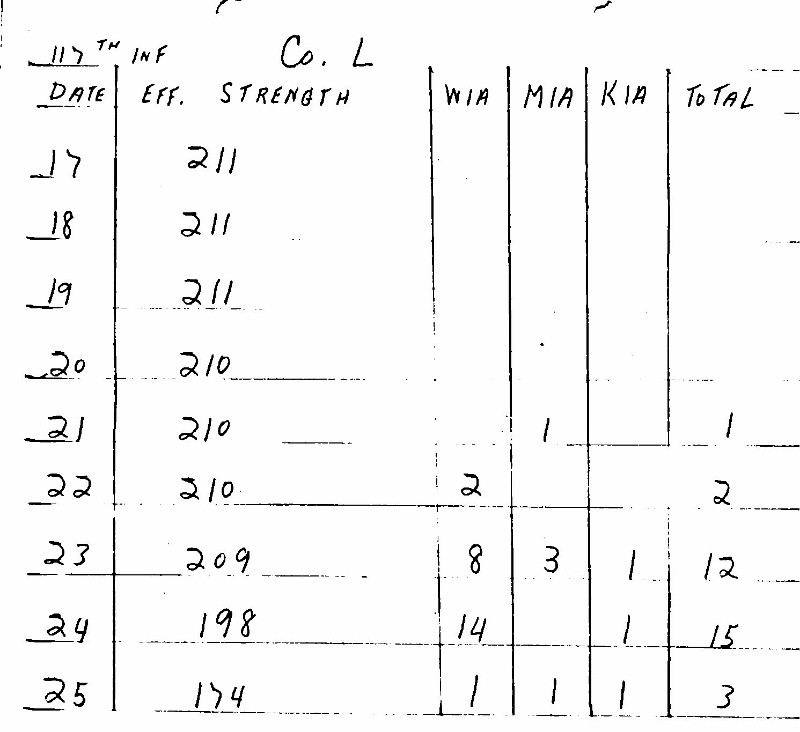 117TH INF Co. L
DATE EFF. STRENGTH WIA MIA KIA TOTAL
17 211
18 211
19 211
20 210
21 210 1 1
22 210 2 2
23 209 8 3 1 12
24 198 14 1 15
25 174 1 1 1 3